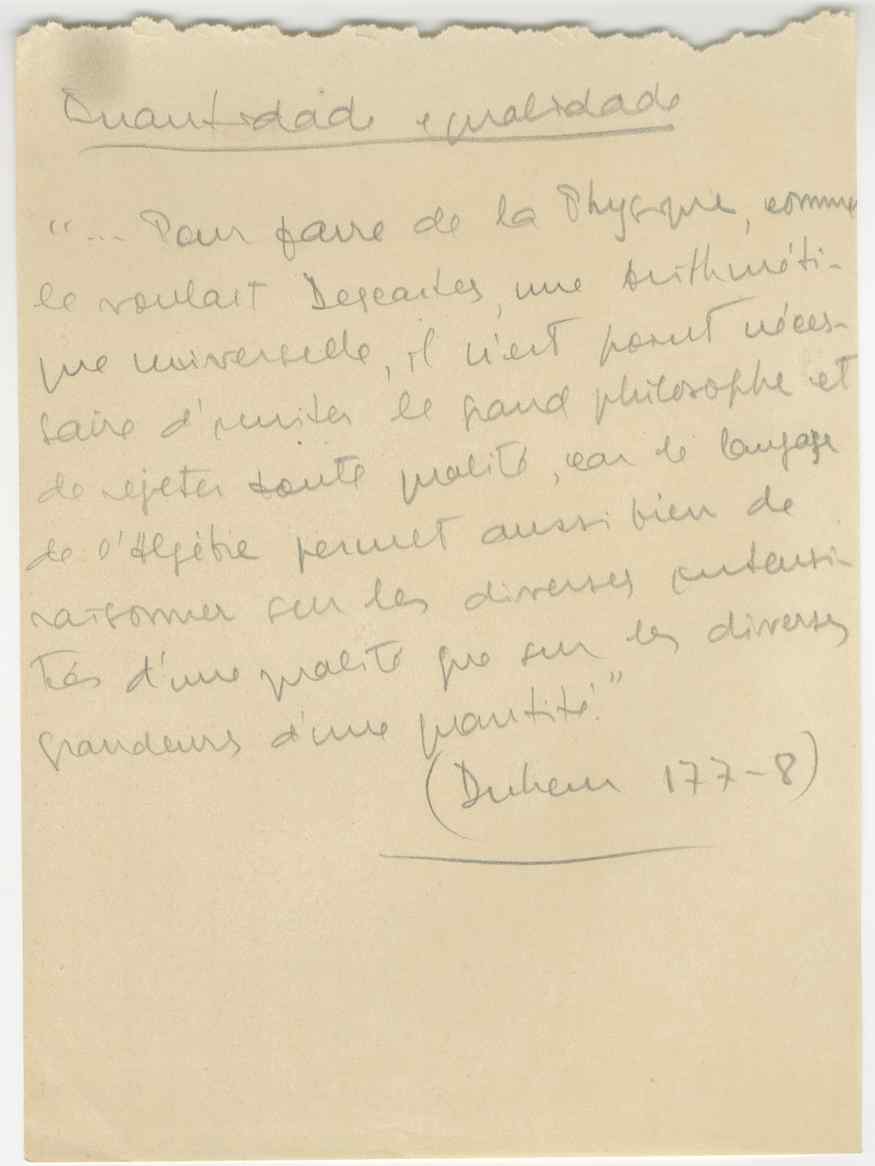 Quantidade e qualidade
"... Pour faire de la Physique, comme
le voulait Descartes, une Arithméti-
que universelle, il n'est point néces-
saire d'imiter le grand philosophe et
de rejeter toute qualité, car le langage
de l'Algèbre permet aussi bien de
raisonner sur les diverses intensi-
tés d'une qualité que sur les diverses
grandeurs d'une quantité."
(Duhem 177-8)